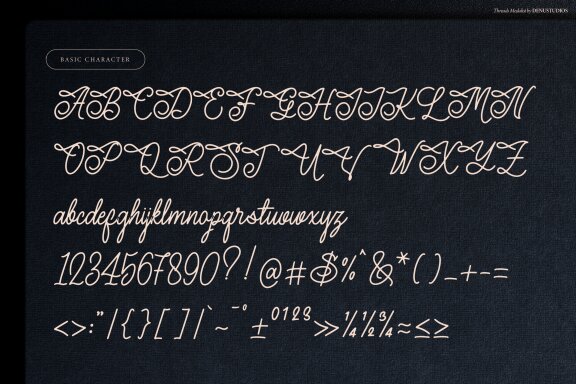 Threads Modelist by DENUSTUDIOS
BASIC CHARACTER
ABCDEFGHIJKLMN
OPQRSTUVWXYZ
abcdefghijklmnopqrstuvwxyz
1234567890?!@#$%^&*()_+-=
<>:"|{}[]|`~¯°±0123≫¼½¾≈≤≥